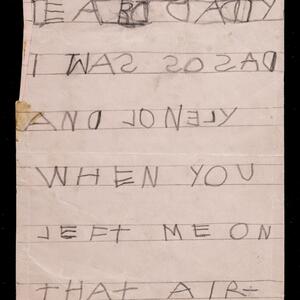 DEAR DADDY
I WAS SO SAD
AND LONELY
WHEN YOU
LEFT ME ON
THAT AIR-